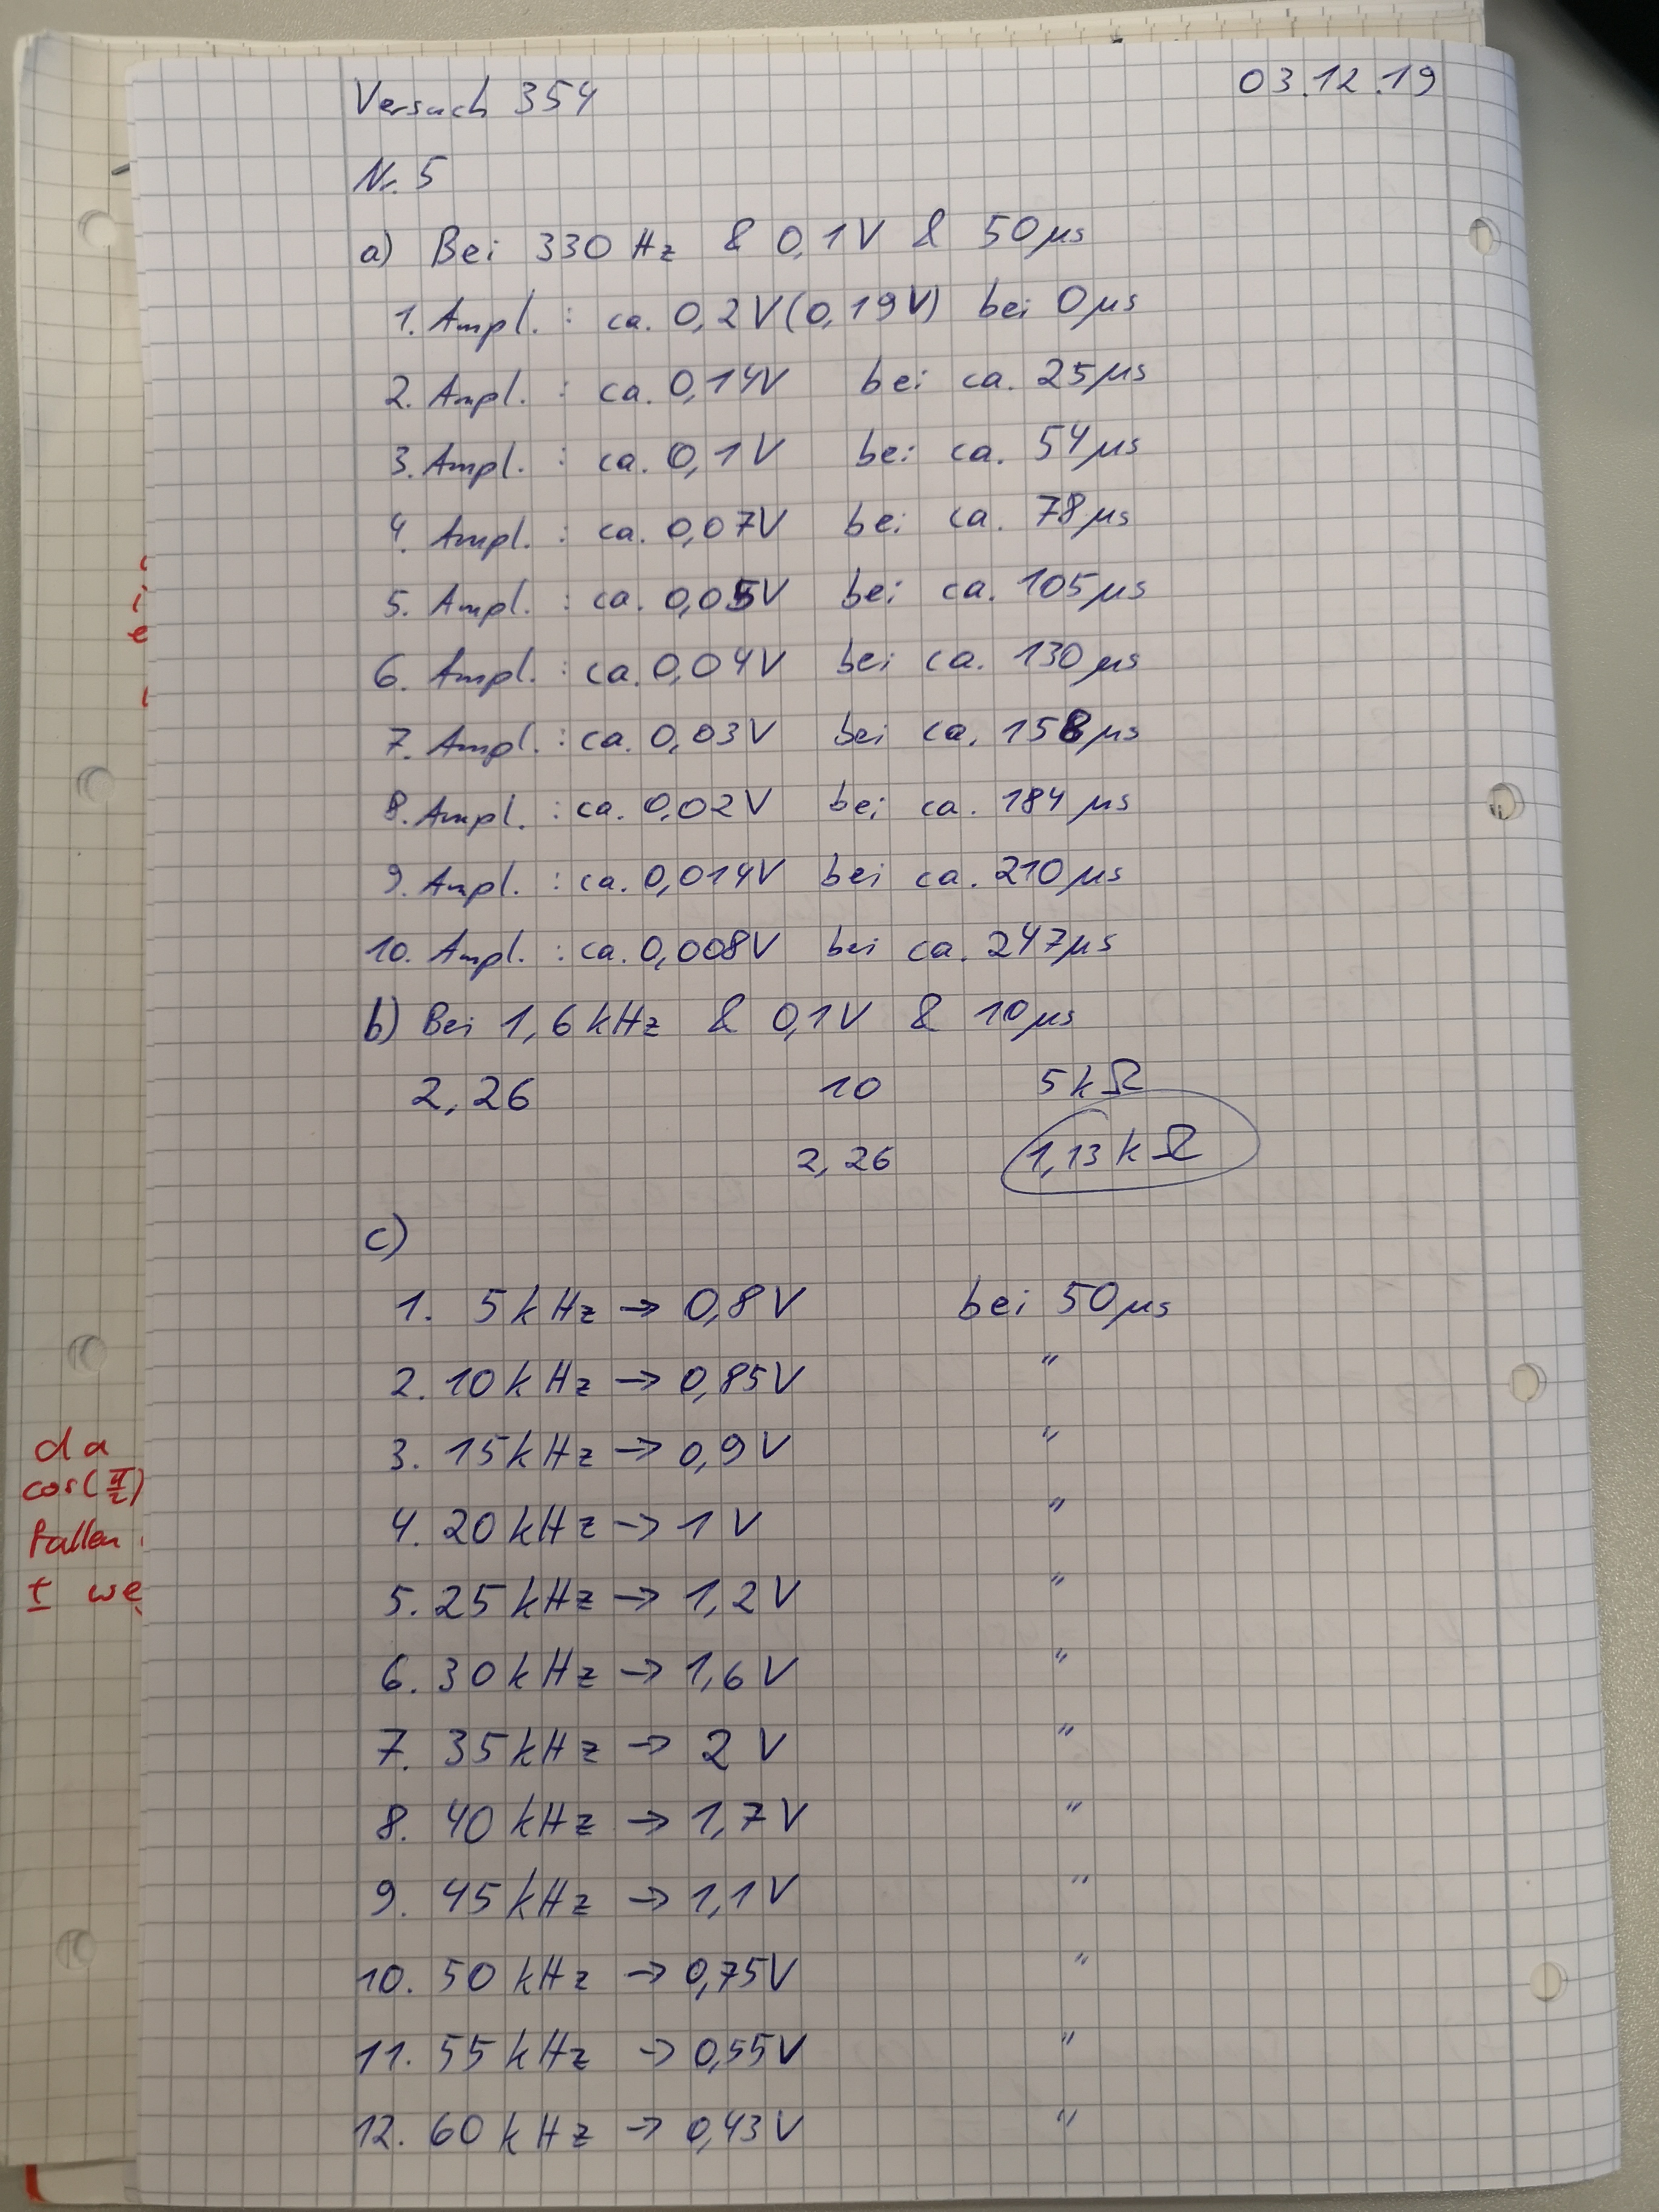 Versuch 354 03.12.19
Nr. 5
a) Bei 330 Hz & 0,1V & 50µs
1. Ampl. : ca. 0,2V (0,19V) bei 0µs
2. Ampl. : ca. 0,14V bei ca. 25µs
3. Ampl. : ca. 0,1V bei ca. 54µs
4. Ampl. : ca. 0,07V bei ca. 78µs
5. Ampl. : ca. 0,05V bei ca. 105µs
6. Ampl. : ca. 0,04V bei ca. 130µs
7. Ampl. : ca. 0,03V bei ca. 158µs
8. Ampl. : ca. 0,02V bei ca. 184µs
9. Ampl. : ca. 0,014V bei ca. 210µs
10. Ampl. : ca. 0,008V bei ca. 247µs
b) Bei 1,6kHz & 0,1V & 10µs
2,26 10 5kΩ
2,26 1,13kΩ
c)
1. 5kHz → 0,8V bei 50µs
2. 10kHz → 0,85V "
3. 15kHz → 0,9V "
4. 20kHz → 1V "
5. 25kHz → 1,2V "
6. 30kHz → 1,6V "
7. 35kHz → 2V "
8. 40kHz → 1,7V "
9. 45kHz → 1,1V "
10. 50kHz → 0,75V "
11. 55kHz → 0,55V "
12. 60kHz → 0,43V "
da
cos(π/2)
fallen
t we